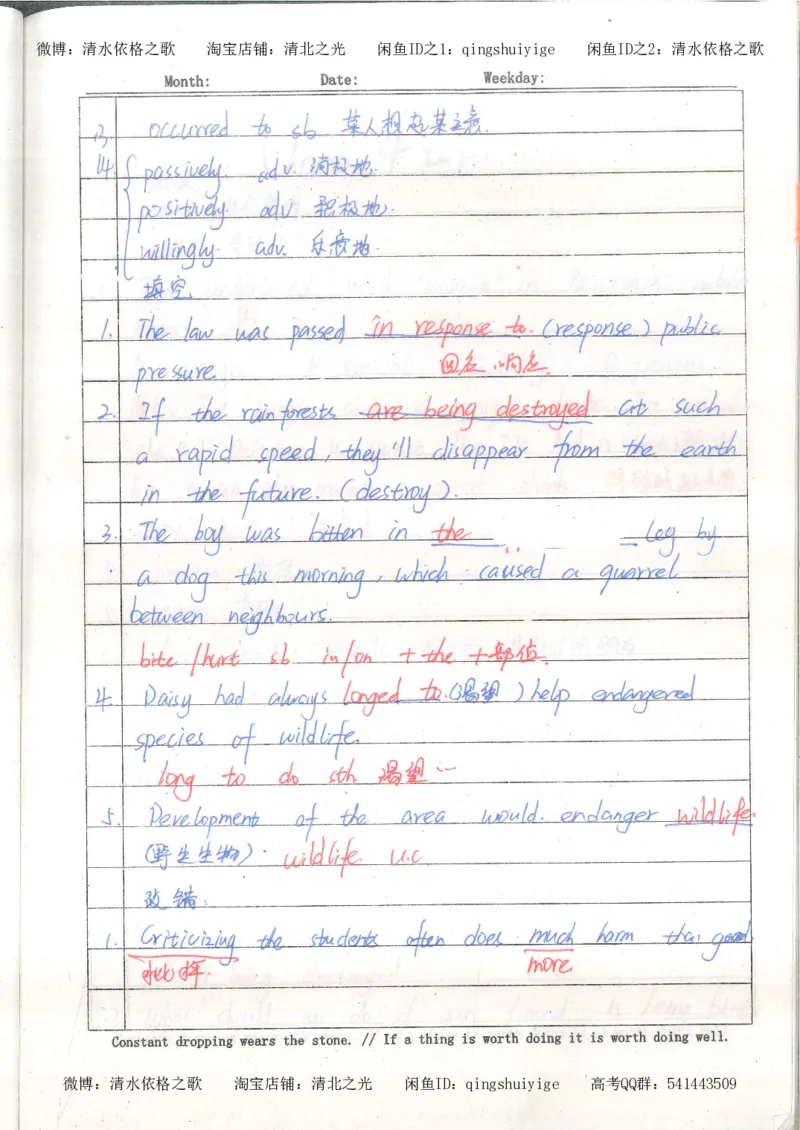 微博：清水依格之歌 淘宝店铺：清北之光 闲鱼ID之1：qingshuiyige 闲鱼ID之2：清水依格之歌
Month: Date: Weekday:
13. occurred to sb 某人想起某主意.
14. passively. adv. 消极地.
positively. adv 积极地.
willingly. adv. 乐意地.
填空.
1. The law was passed in response to. (response) public
pressure. 回应，响应.
2. If the rainforests are being destroyed at such
a rapid speed, they'll disappear from the earth
in the future. (destroy).
3. The boy was bitten in the leg by
a dog this morning, which caused a quarrel
between neighbours.
bite /hurt sb in/on + the + 部位.
4. Daisy had always longed to. (渴望) help endangered
species of wildlife.
long to do sth 渴望…
5. Development of the area would. endanger wildlife.
(野生生物). wildlife u.c.
改错:
1. Criticizing the students often does much harm than good
批评. more
Constant dropping wears the stone. // If a thing is worth doing it is worth doing well.
微博：清水依格之歌 淘宝店铺：清北之光 闲鱼ID：qingshuiyige 高考QQ群：541443509